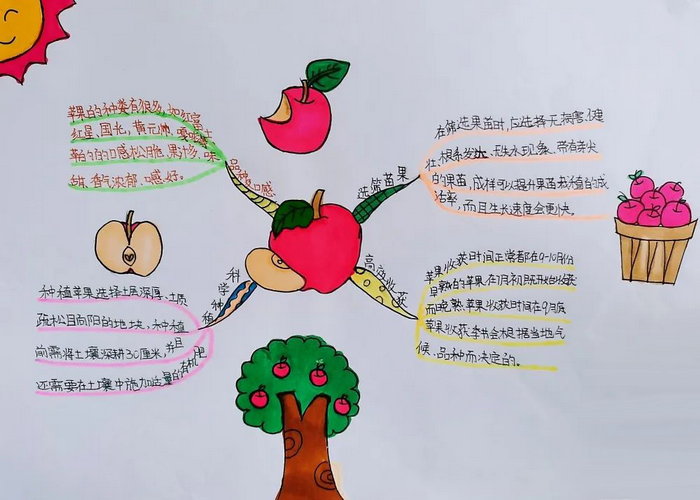 苹果的种类有很多,如红富
红星、国光、黄元帅、嘎啦
苹的口感松脆、果汁多、味
香气浓郁、口感好。
品种、口感
选筛苗果
在筛选果苗时,应选择无损害、健
壮、根系发达、无失水现象、带有芽尖
的果苗,这样可以提升果苗栽植的成
活率,而且生长速度会更快。
科学种植
种植苹果选择土层深厚、土质
疏松且向阳的地块,种植
前需将土壤深耕30厘米,并且
还需要在土壤中施加适量的有机肥
高效收获
苹果收获时间正常都在9-10月份
早熟的苹果在月初既开始收获
而晚熟苹果收获时间在9月底
苹果收获季节会根据当地气
候、品种而决定的。